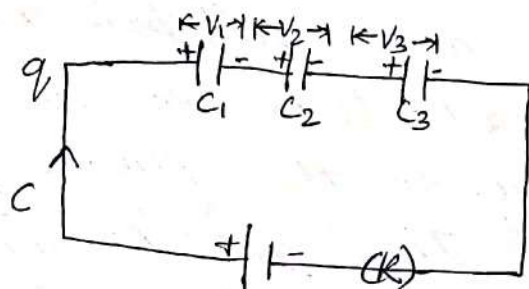 V₁ V₂ V₃
+ - + - + -
q
C₁ C₂ C₃
C
+ - (K)